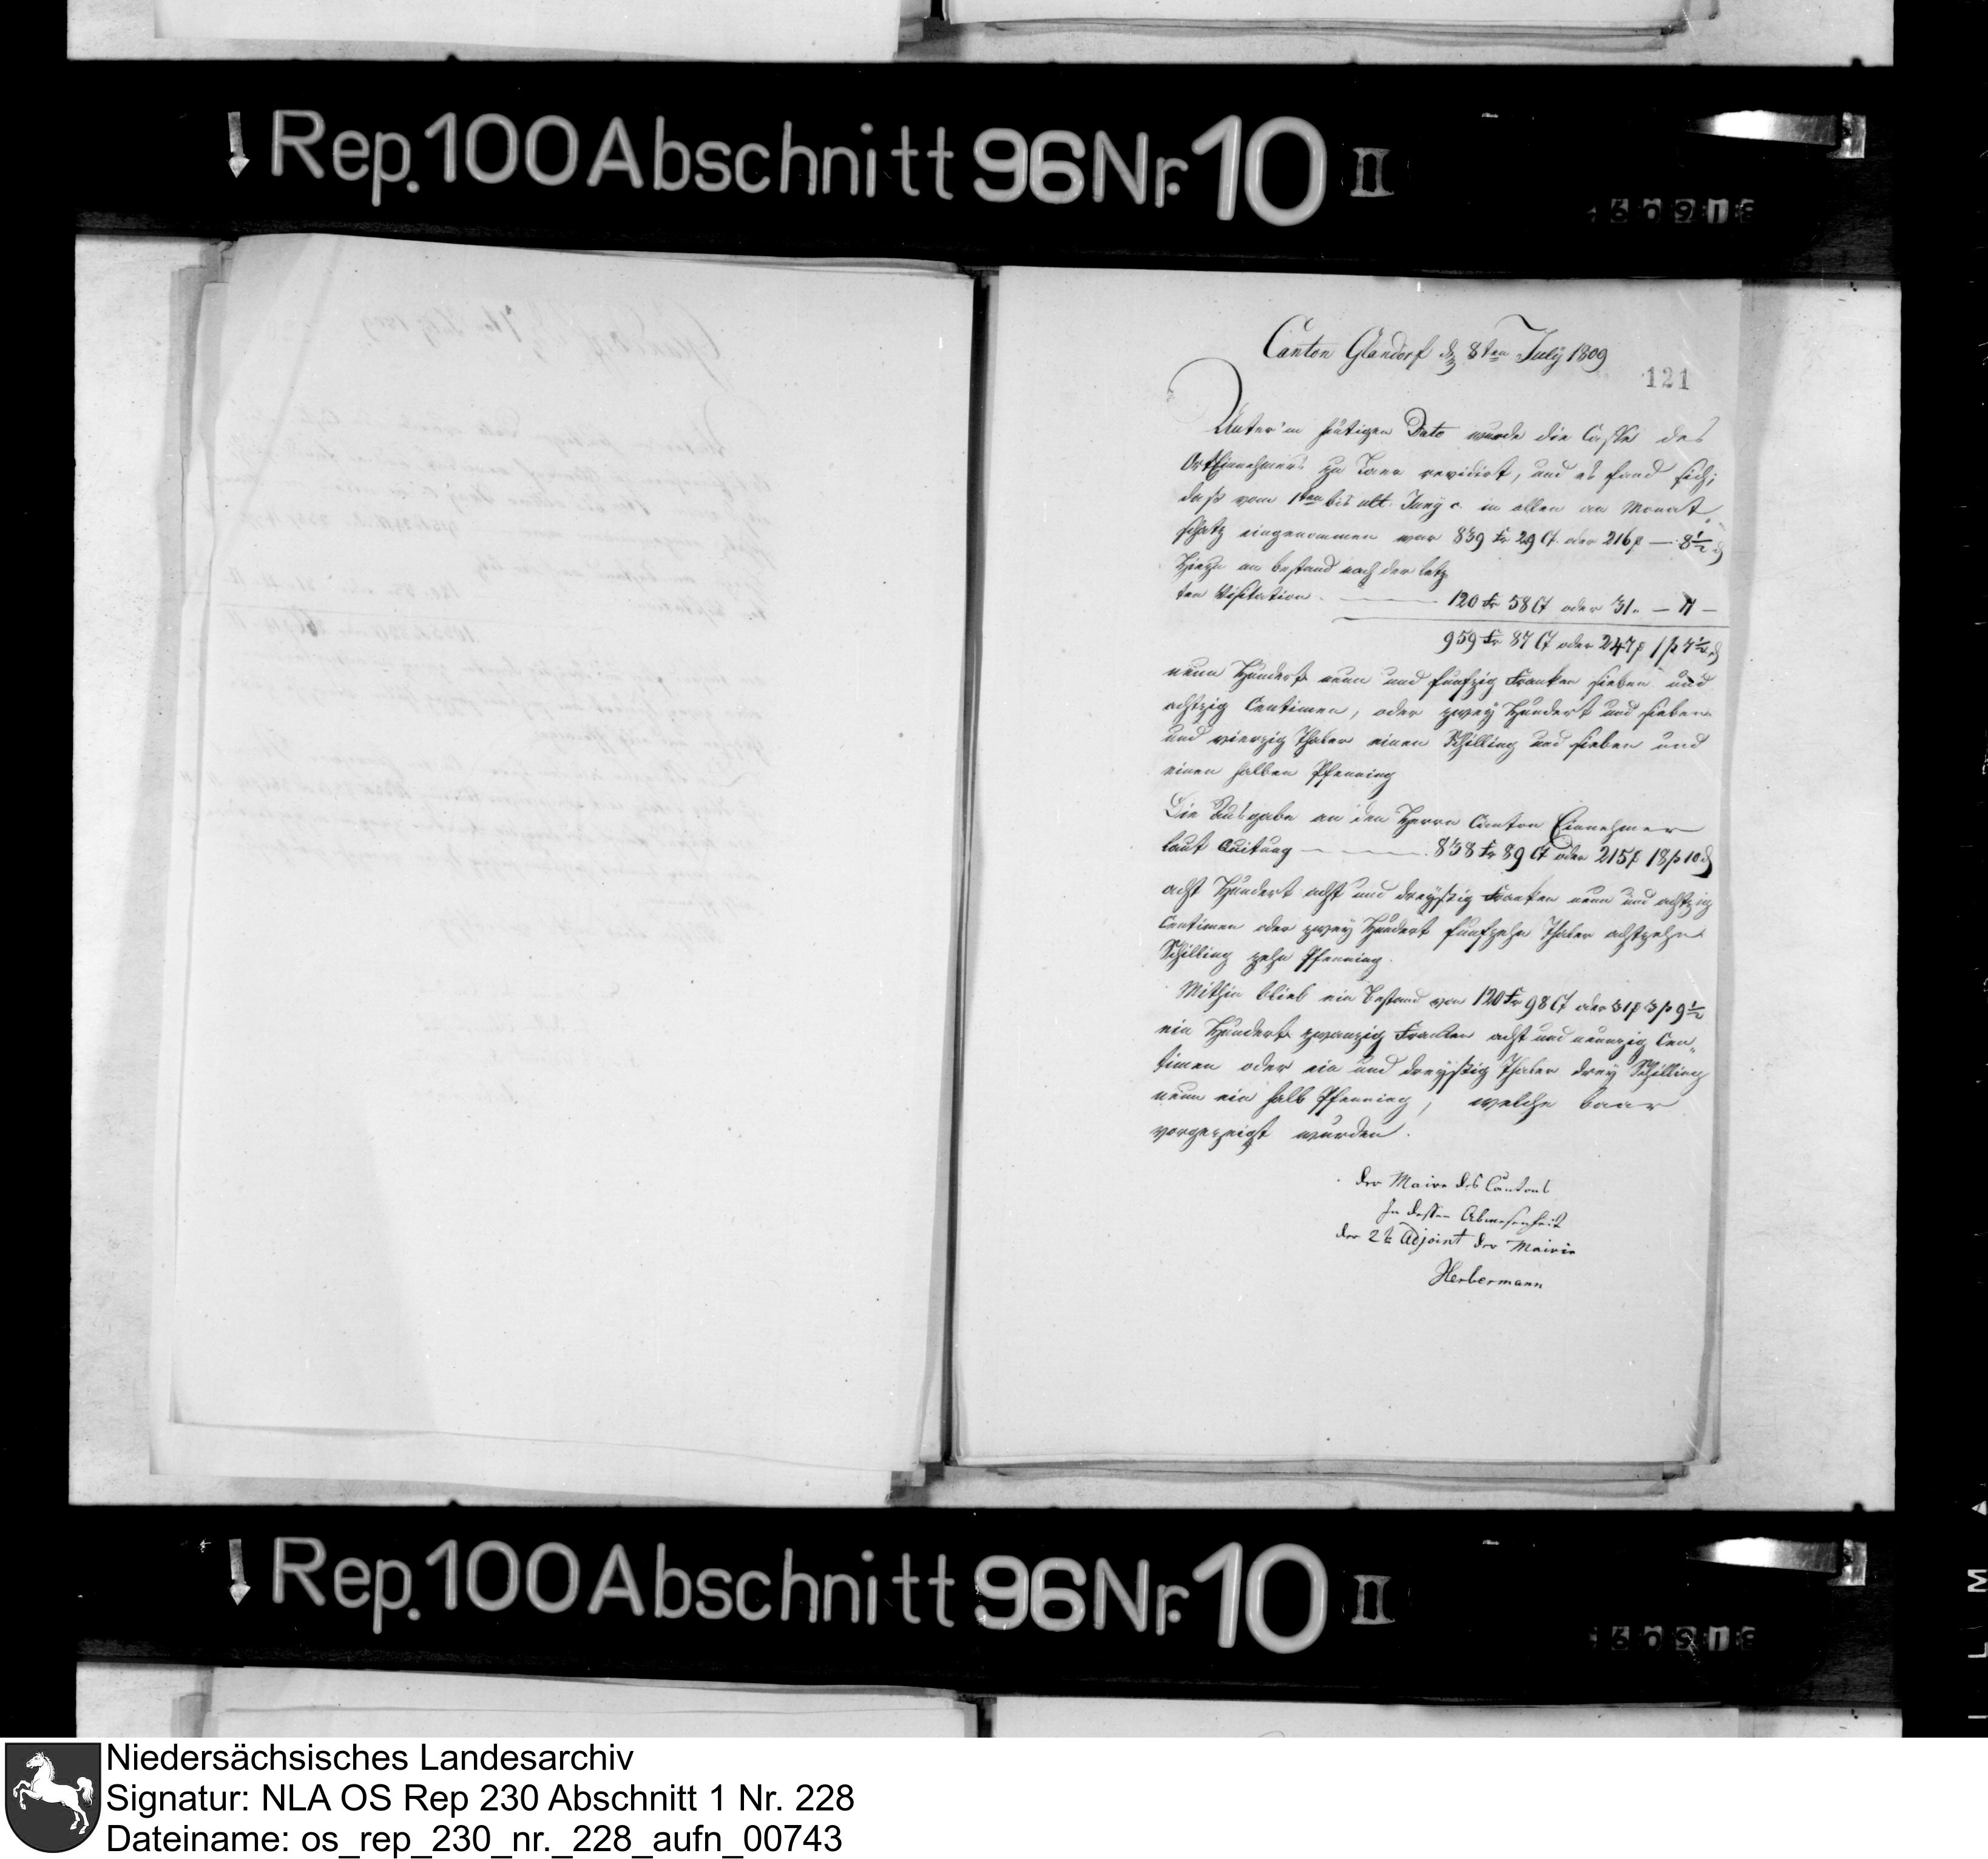 Rep. 100 Abschnitt 96 Nr. 10 II
Canton Glandorf d 8ten July 1809
121
Unter'm heutigen Dato wurde die Casse des
OrtEinnehmers zu Laer revidirt, und es fand sich;
daß vom 1ten bis ult. Juny c. in allen an Monat
schatz eingenommen war 839 Fr 29 Ct. oder 216 — 8½
Hiezu an bestand nach der letz
ten Visitation — 120 Fr 58 Ct oder 31 —
959 Fr 87 Ct oder 247 1 ß 7½
neun Hundert neun und funfzig Franken sieben und
achtzig Centimen, oder zwey Hundert und sieben
und vierzig Thaler einen Schilling und sieben und
einen halben Pfenning
Die Ausgabe an den Herrn Canton Einnehmer
laut Quitung — 838 Fr 89 Ct oder 215 18 ß 10
acht Hundert acht und dreyßig Franken neun und achtzig
Centimen oder zwey Hundert funfzehn Thaler achtzehn
Schilling zehn Pfenning.
Mithin blieb ein Bestand von 120 Fr 98 Ct oder 31 3 ß 9½
ein Hundert zwanzig Franken acht und neunzig Cen„
timen oder ein und dreyßig Thaler drey Schilling
neun ein halb Pfenning, welche baar
vorgezeigt wurden.
der Maire des Cantons
In dessen Abwesenheit
der 2te Adjoint der Mairie
Herbermann
Rep. 100 Abschnitt 96 Nr. 10 II
Niedersächsisches Landesarchiv
Signatur: NLA OS Rep 230 Abschnitt 1 Nr. 228
Dateiname: os_rep_230_nr._228_aufn_00743